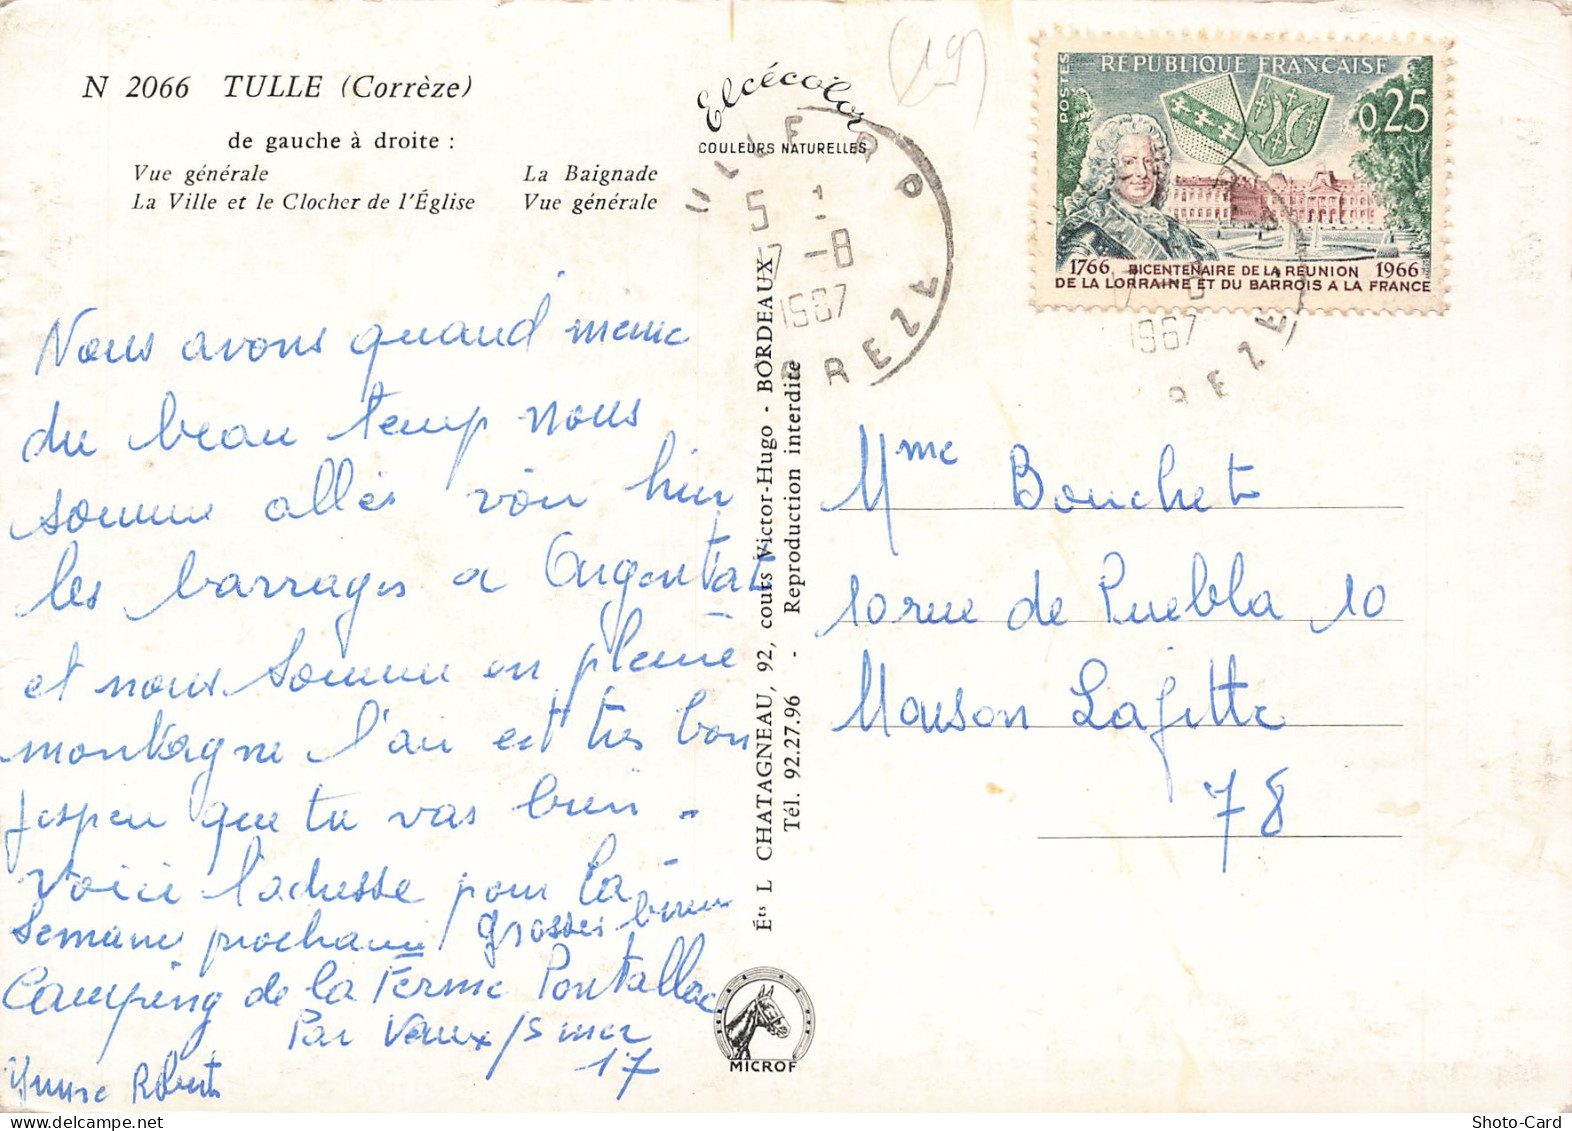 N 2066 TULLE (Corrèze)
de gauche à droite :
Vue générale
La Baignade
La Ville et le Clocher de l'Église
Vue générale
Elcécolor
COULEURS NATURELLES
(19)
RÉPUBLIQUE FRANÇAISE
POSTES
0,25
1766 BICENTENAIRE DE LA RÉUNION 1966
DE LA LORRAINE ET DU BARROIS A LA FRANCE
ULLE R P
5
7 -8
1967
RREZE
1967
REZE
Nous avons quand meme
du beau temp nous
somme allés voir hier
les barrages a Argentat
et nous somme en pleine
montagne l'air est très bon
J'espere que tu vas bien.
Voici l'adresse pour la
Semaine prochaine grosses bises
Camping de la Ferme Pontallac
Par Vaux/s mer
17
Roberts
Éts L CHATAGNEAU, 92, cours Victor-Hugo - BORDEAUX
Tél. 92.27.96 - Reproduction interdite
MICROF
Mme Bouchet
10 rue de Puebla 10
Maison Lafitte
78
Shoto-Card